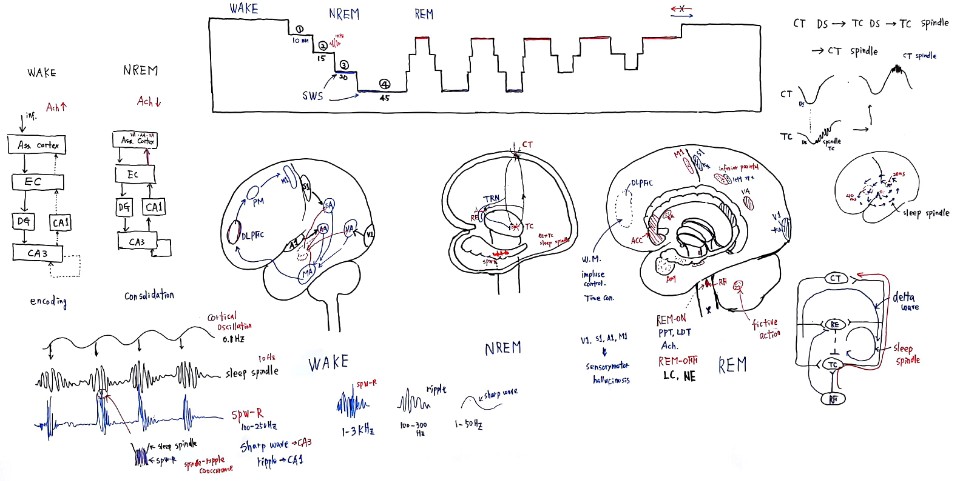 WAKE
NREM
REM
①
10 min
②
15
③
30
④
45
SWS
CT DS → TC DS → TC spindle
→ CT spindle
CT spindle
CT
DS
TC
DS
spindle
TC
sleep spindle
WAKE
NREM
Ach↑
Ach↓
inf.
Ass cortex
EC
DG
CA1
CA3
encoding
Ass Cortex
EC
DG
CA1
CA3
Consolidation
PM
M1
S1
DLPFC
A1
AA
VA
V1
MA
CT
TRN
RE
TC
sleep spindle
SPWR
DLPFC
M1
S1
inferior parietal
VA
V1
ACC
AM
RF
W.M.
impluse
control.
Time con.
fictive
action
REM-ON
PPT, LDT
Ach.
REM-OFF
LC, NE
V1, S1, A1, M1
sensorymotor
hallucinosis
REM
WAKE
NREM
CT
RE
TC
RF
delta
wave
sleep
spindle
Cortical
Oscillation
0.8 Hz
10Hz
sleep spindle
SPW-R
100-250Hz
sleep spindle
SPW-R
spindle-ripple
cooccurence
Sharp wave → CA3
ripple → CA1
SPW-R
1-3KHz
ripple
100-300
Hz
sharp wave
1-50Hz